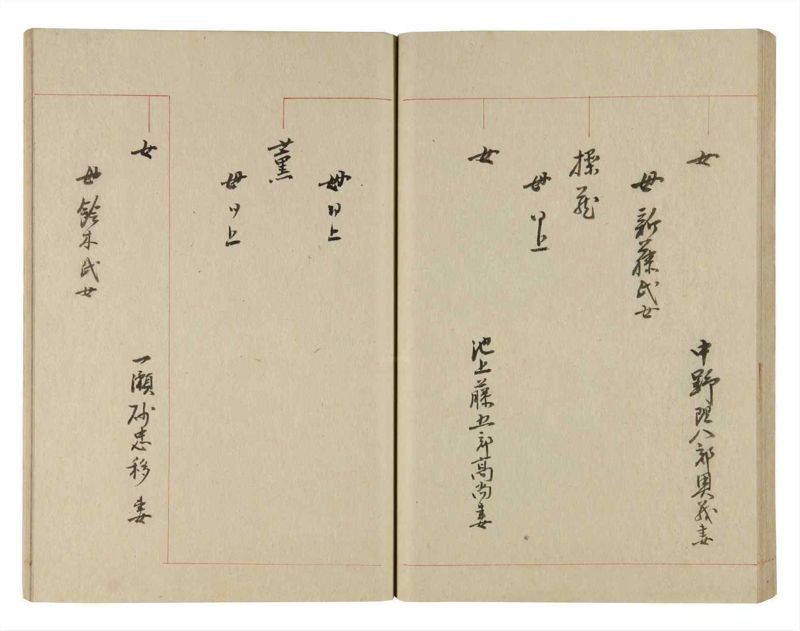 女
中野理八郎奥義妻
母新藤氏女
操蔵
母同上
女
池上藤五郎高尚妻
母同上
薫
母同上
女
一瀬 移妻
母鈴木氏女